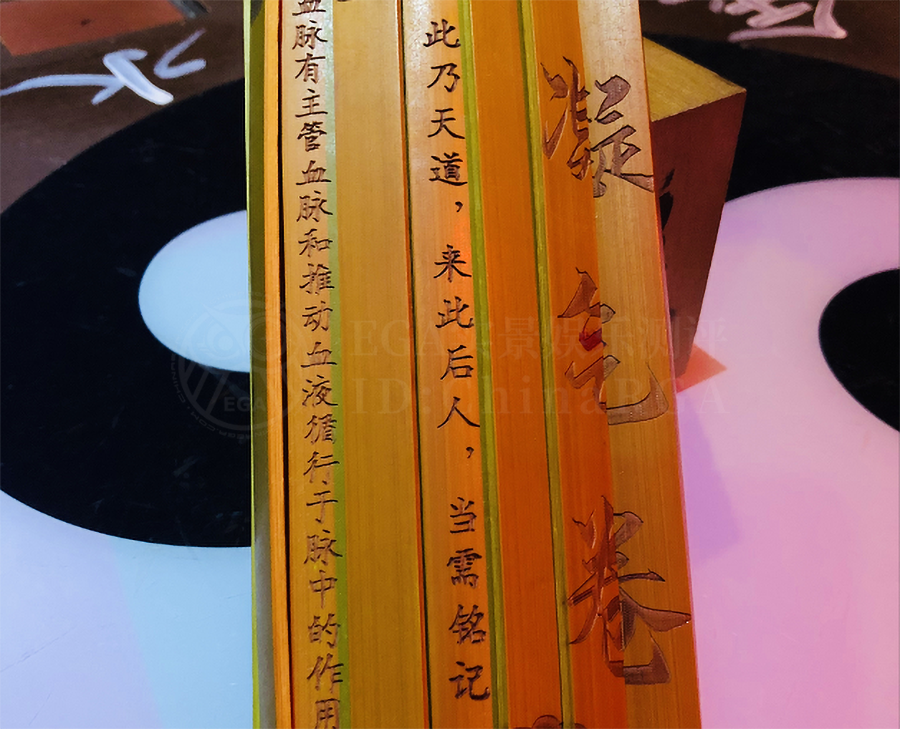 凝气卷
此乃天道，来此后人，当需铭记
血脉有主管血脉和推动血液循行于脉中的作用
水
EGA全景娱乐测评
ID:ChinaEGA
EGA